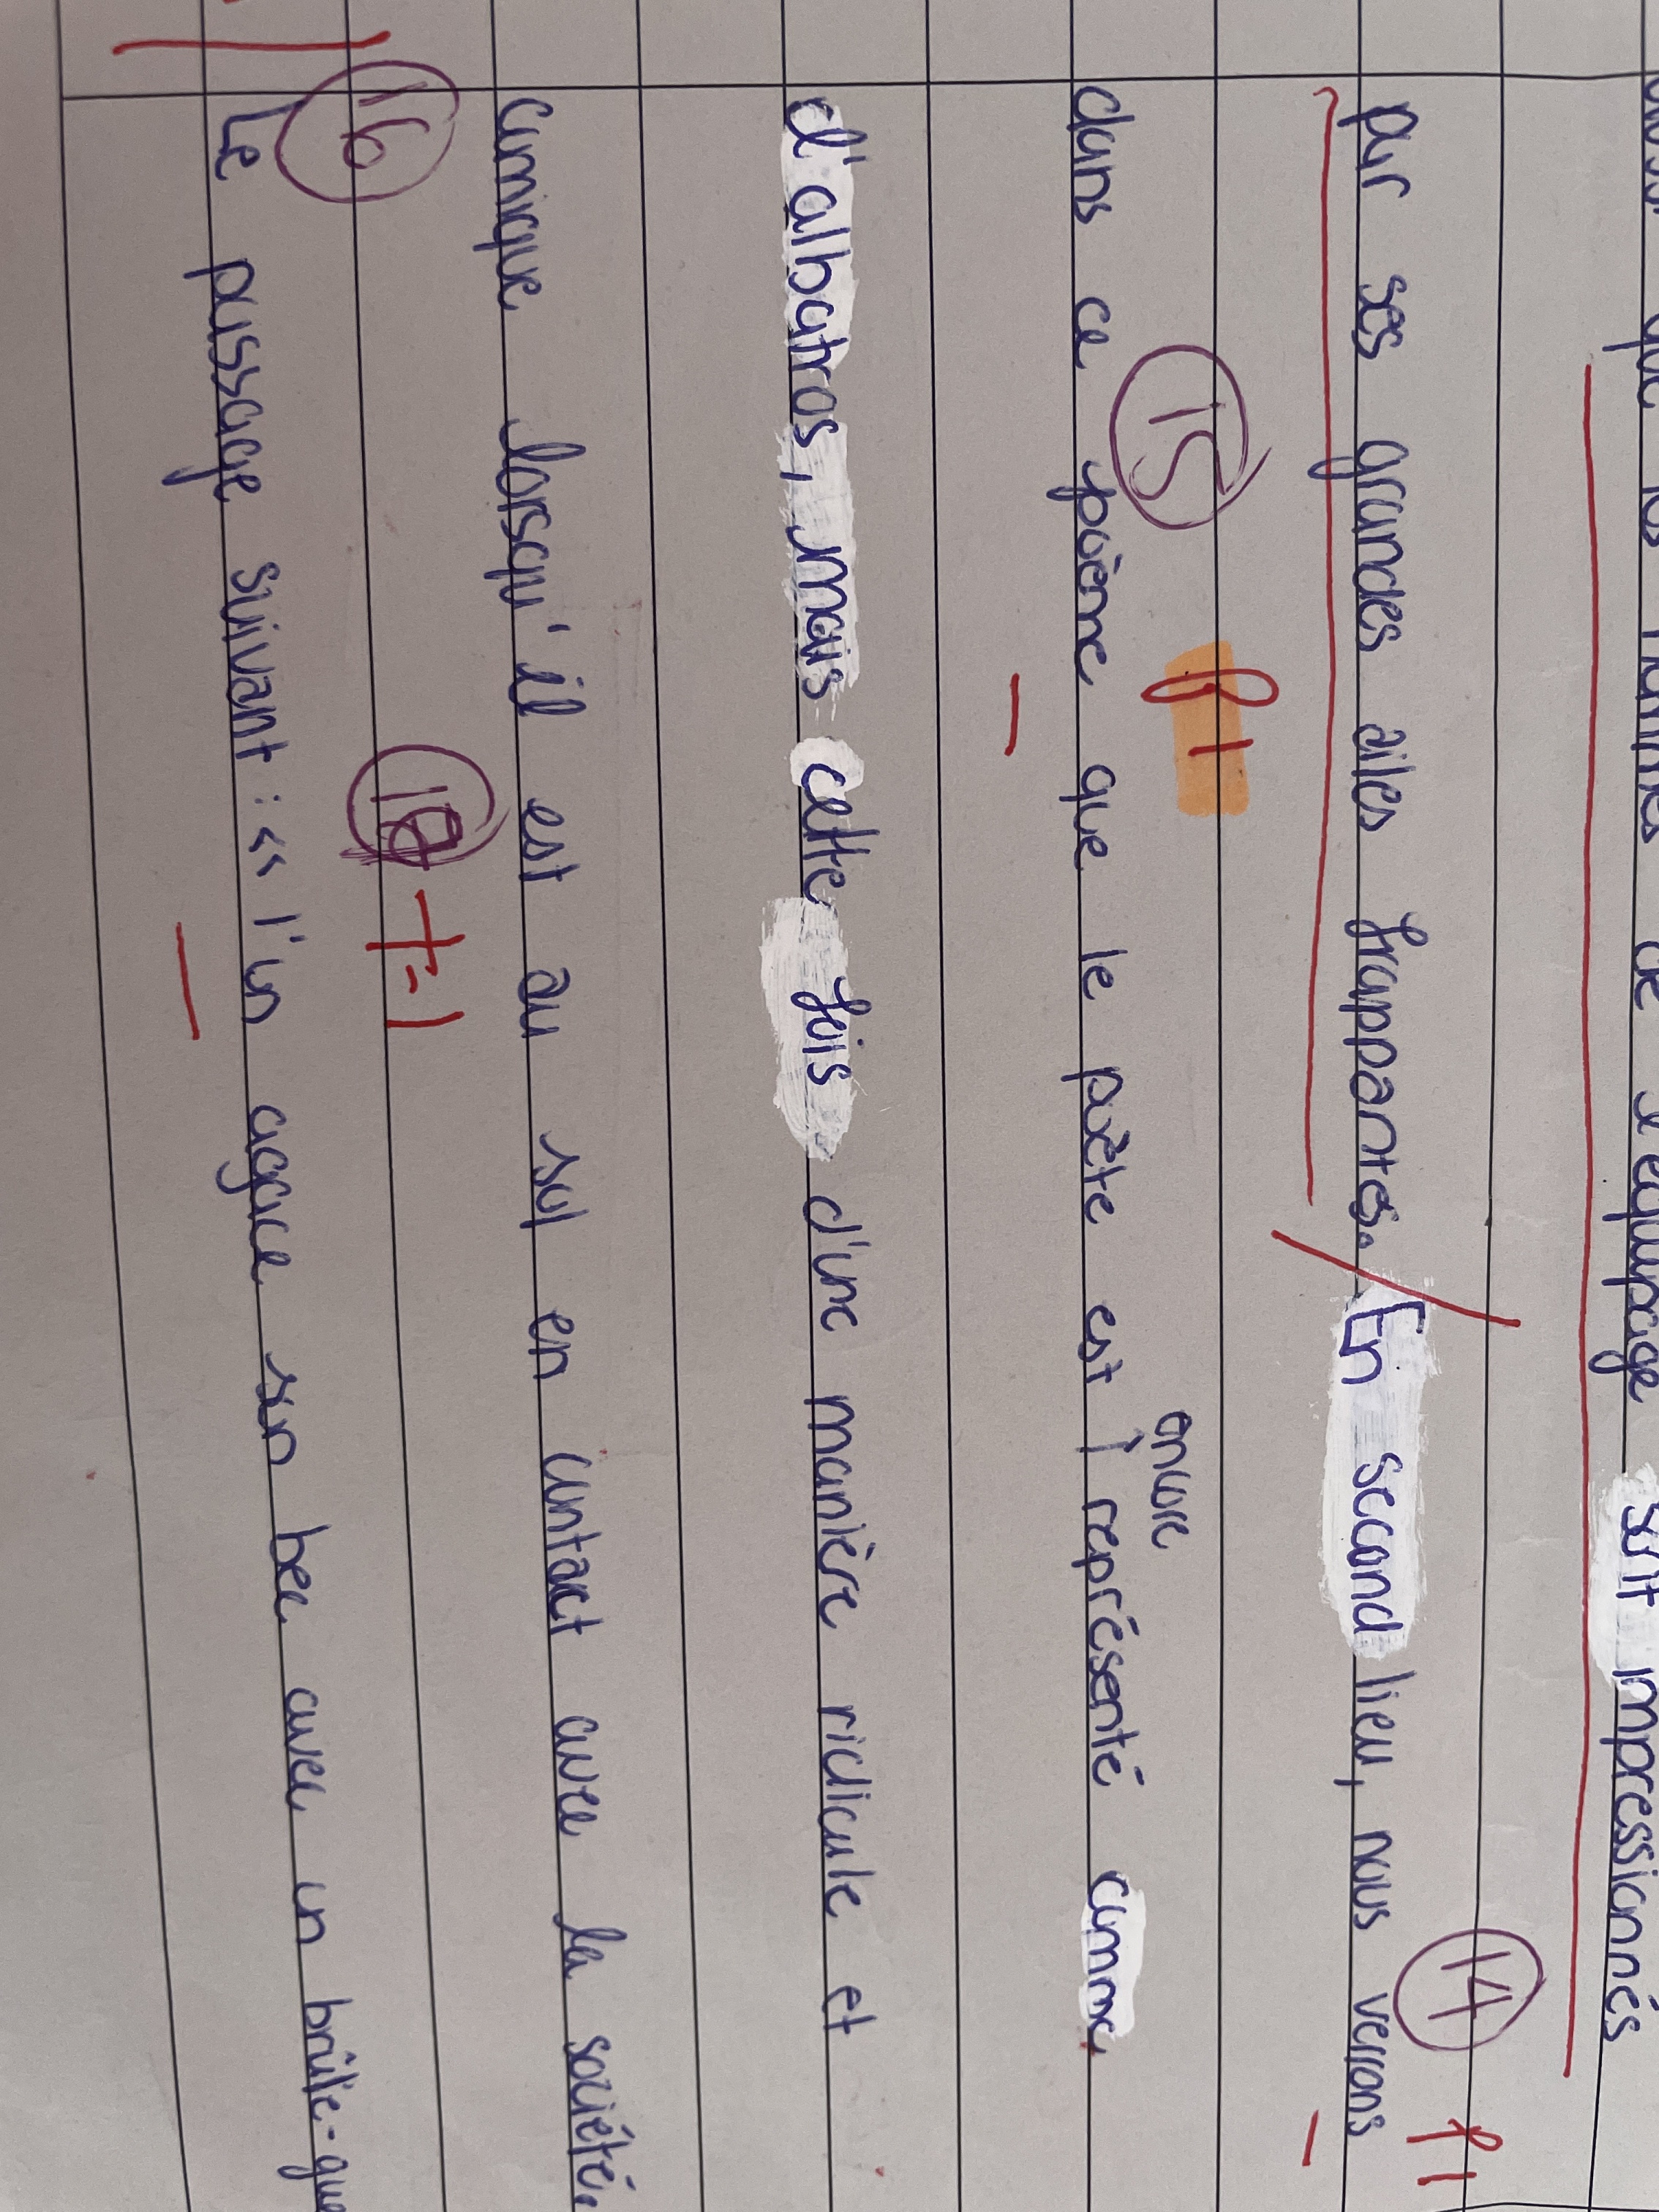 que les hommes de l'équipage sont impressionnés
14 f1
par ses grandes ailes frappantes. En second lieu, nous verrons
15 f1 encore
dans ce poème que le poète est représenté comme
d'albatros, mais cette fois d'une manière ridicule et
comique lorsqu'il est au sol en contact avec la société.
16 t-1
Le passage suivant : « l'un agace son bec avec un brûle-gue